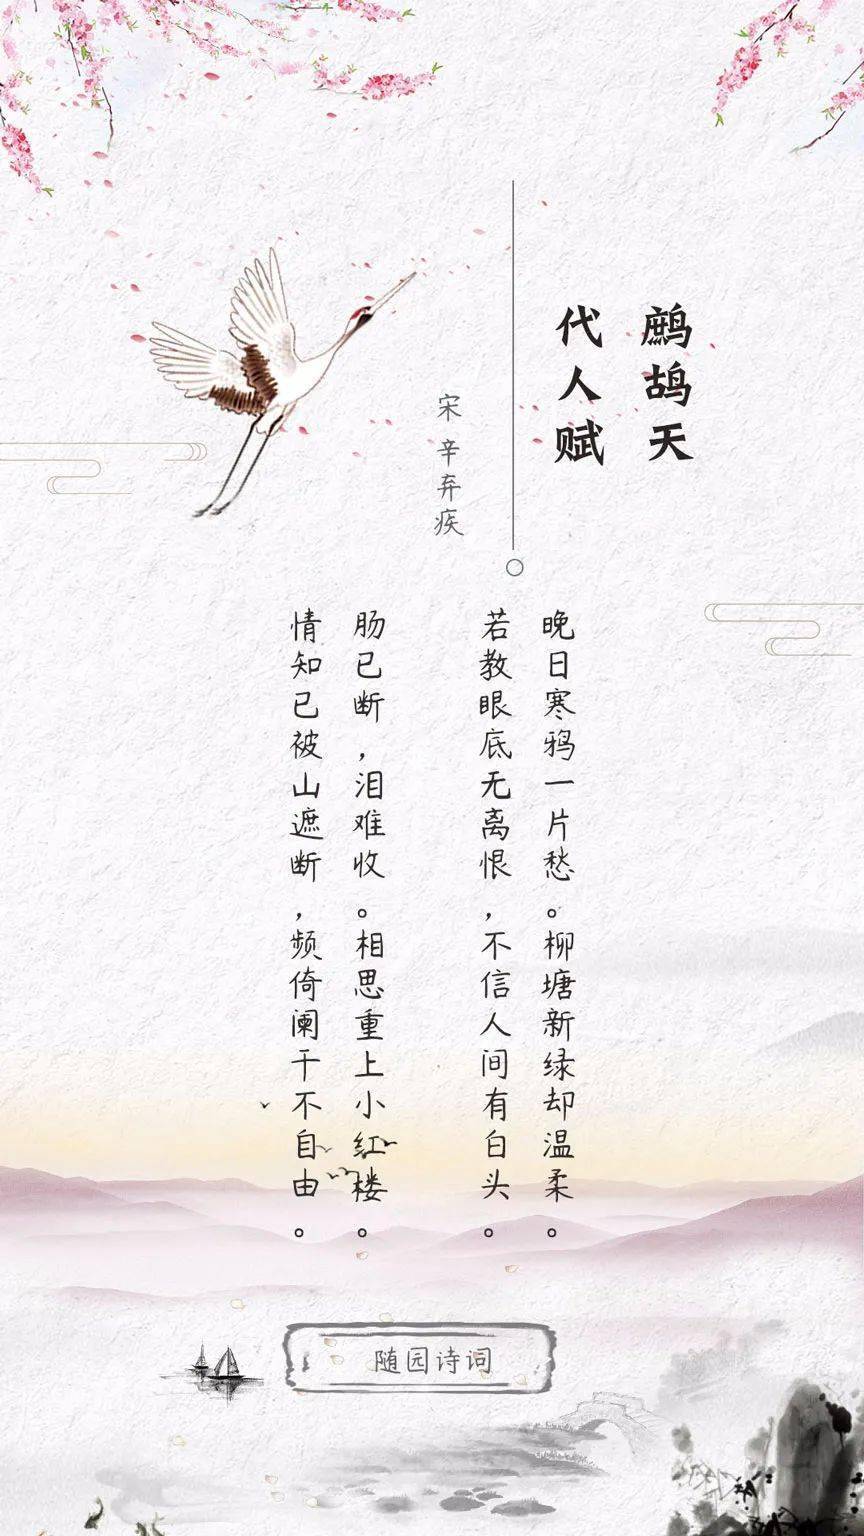 鹧鸪天
代人赋
宋 辛弃疾
晚日寒鸦一片愁。柳塘新绿却温柔。
若教眼底无离恨，不信人间有白头。
肠已断，泪难收。相思重上小红楼。
情知已被山遮断，频倚阑干不自由。
随园诗词